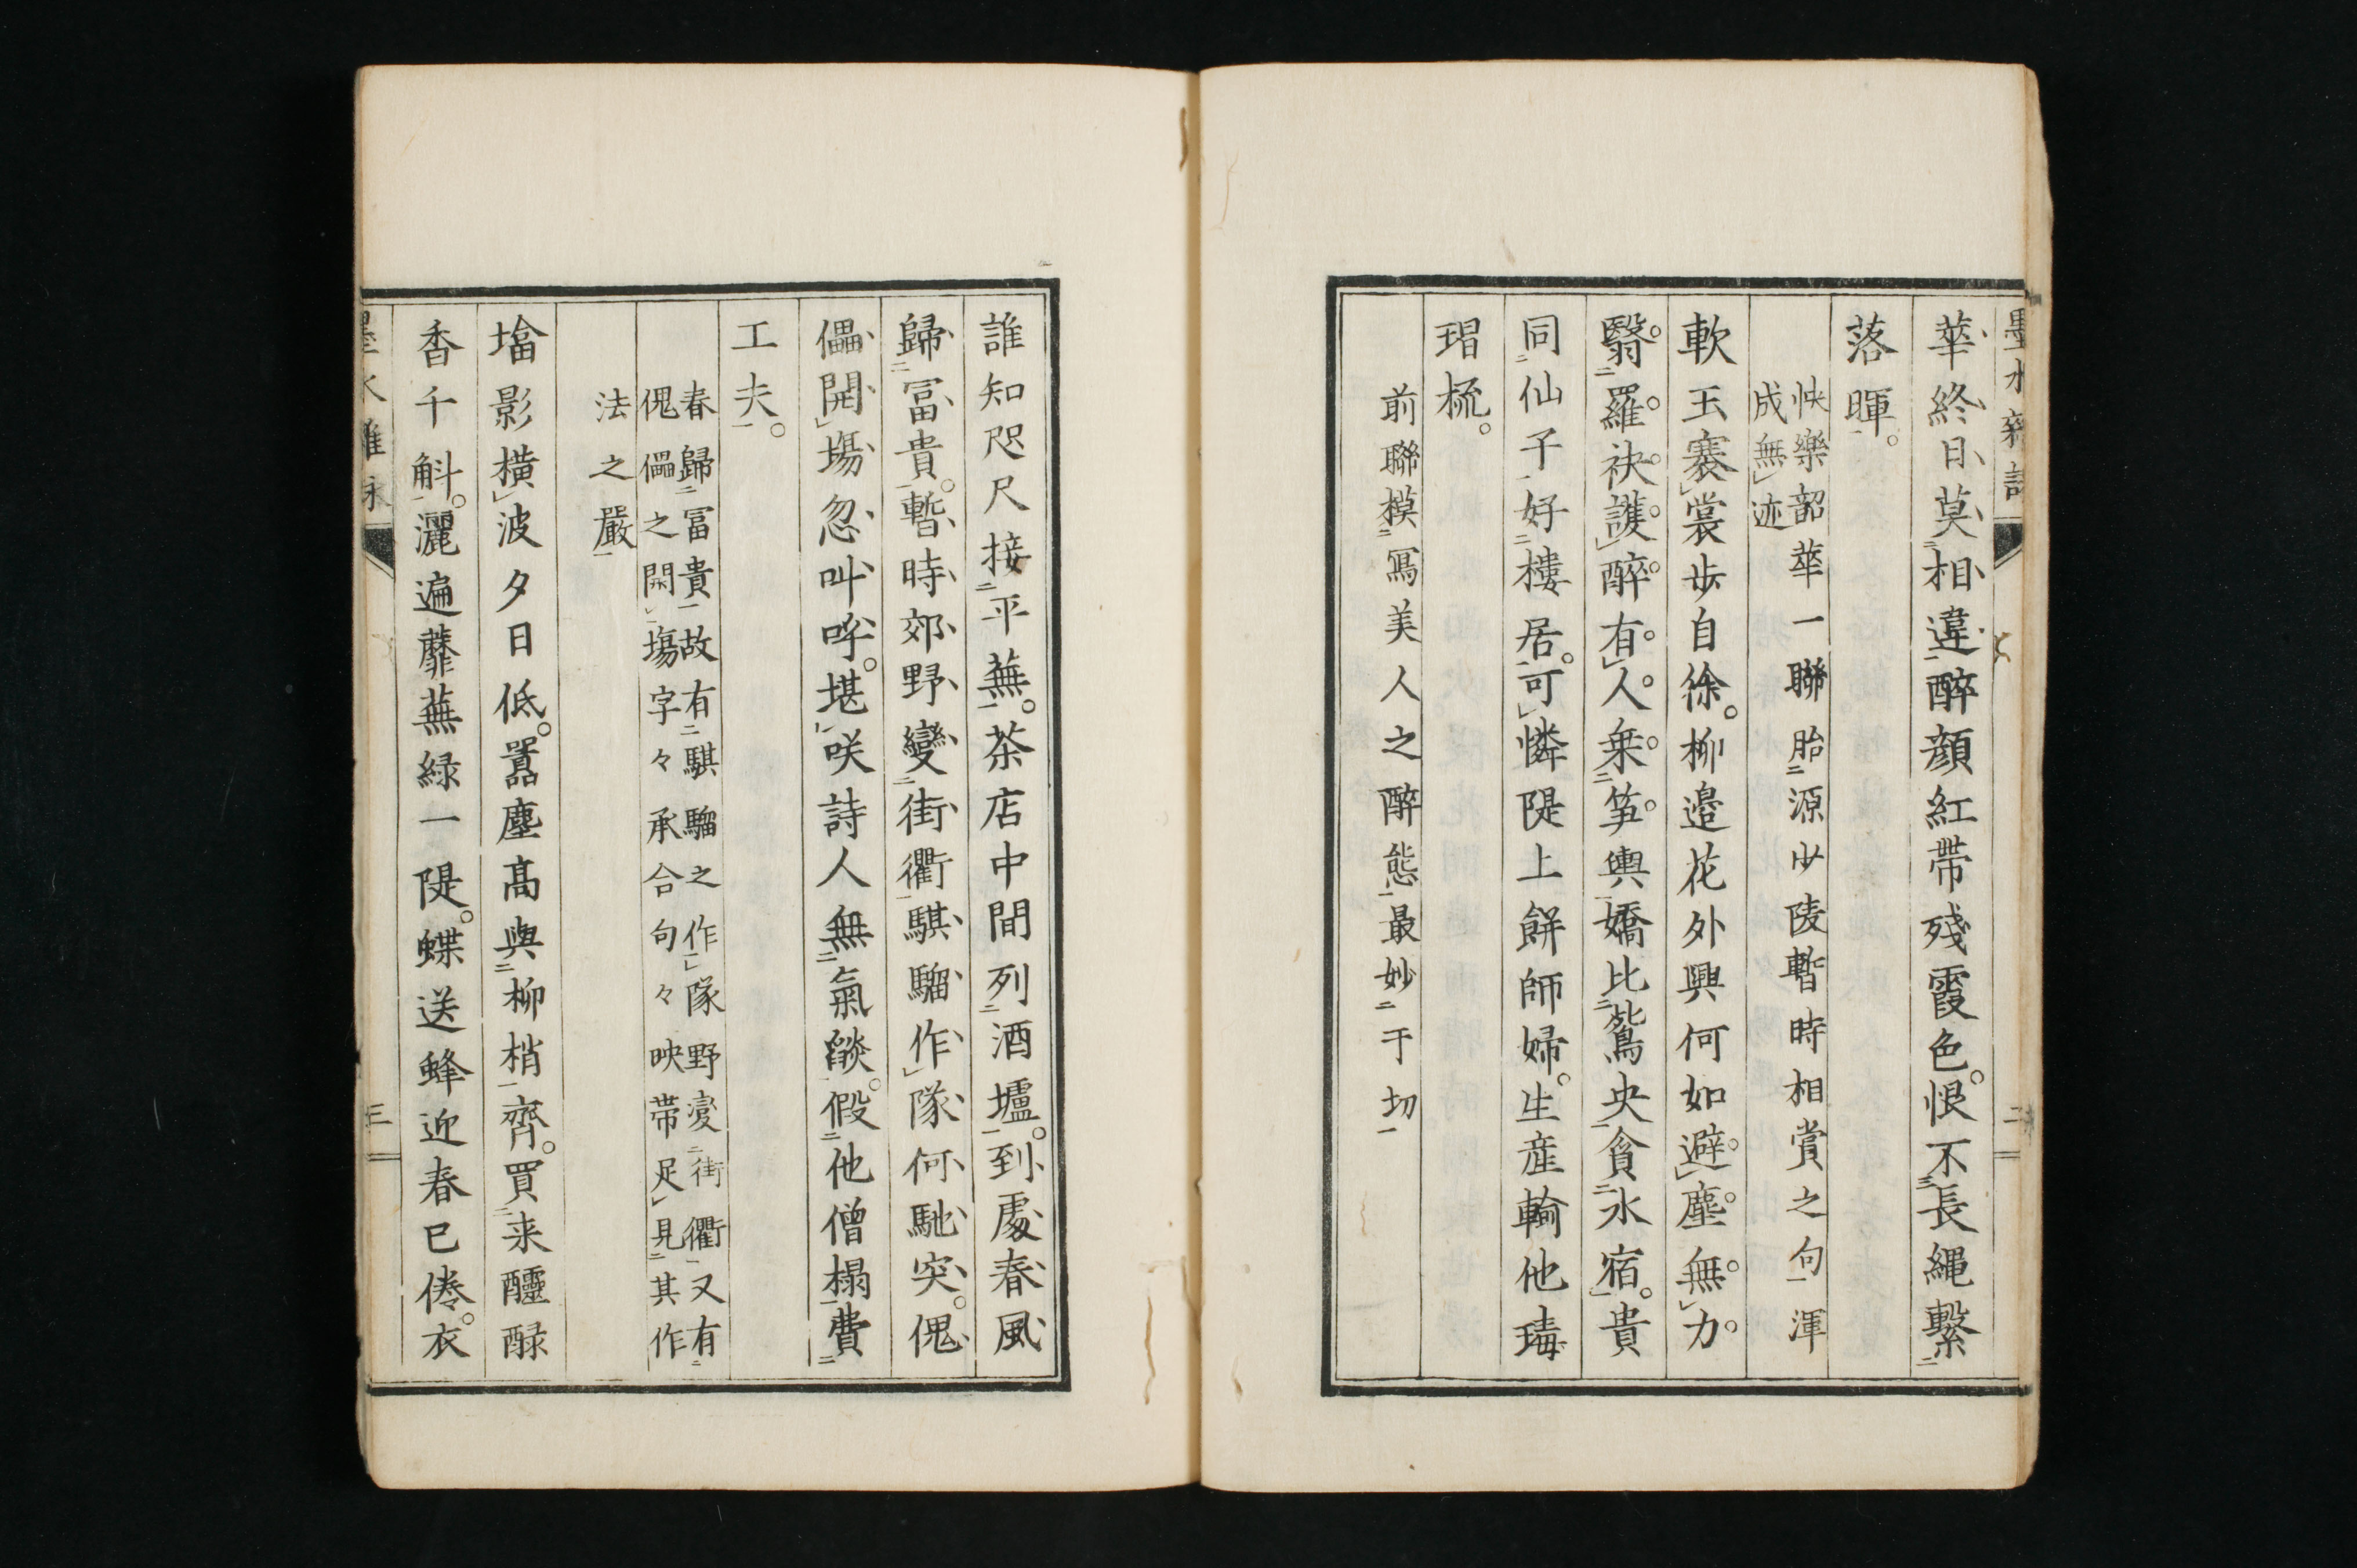 華終日莫相違醉顔紅帶殘霞色恨不長繩繋
落暉
怏樂韶華一聯胎源少陵暫時相賞之句渾
成無迹
軟玉褰裳歩自徐柳邉花外興何如避塵無力
翳羅袂護醉有人乗筍輿嬌比鴛央貪水宿貴
同仙子好樓居可憐隄上餅師婦生産輸他瑇
瑁梳
前聯摸寫美人之醉態最妙于切
二
誰知咫尺接平蕪茶店中間列酒壚到處春風
歸冨貴暫時郊野變街衢騏驑作隊何馳突傀
儡開塲忽叫呼堪咲詩人無氣燄假他僧榻費
工夫
春歸冨貴故有騏驑之作隊野変街衢又有
傀儡之開塲字々承合句々映帯足見其作
法之嚴
墖影横波夕日低囂塵髙與柳梢齊買来醽醁
香千斛灑遍蘼蕪緑一隄蝶送蜂迎春已倦衣
三